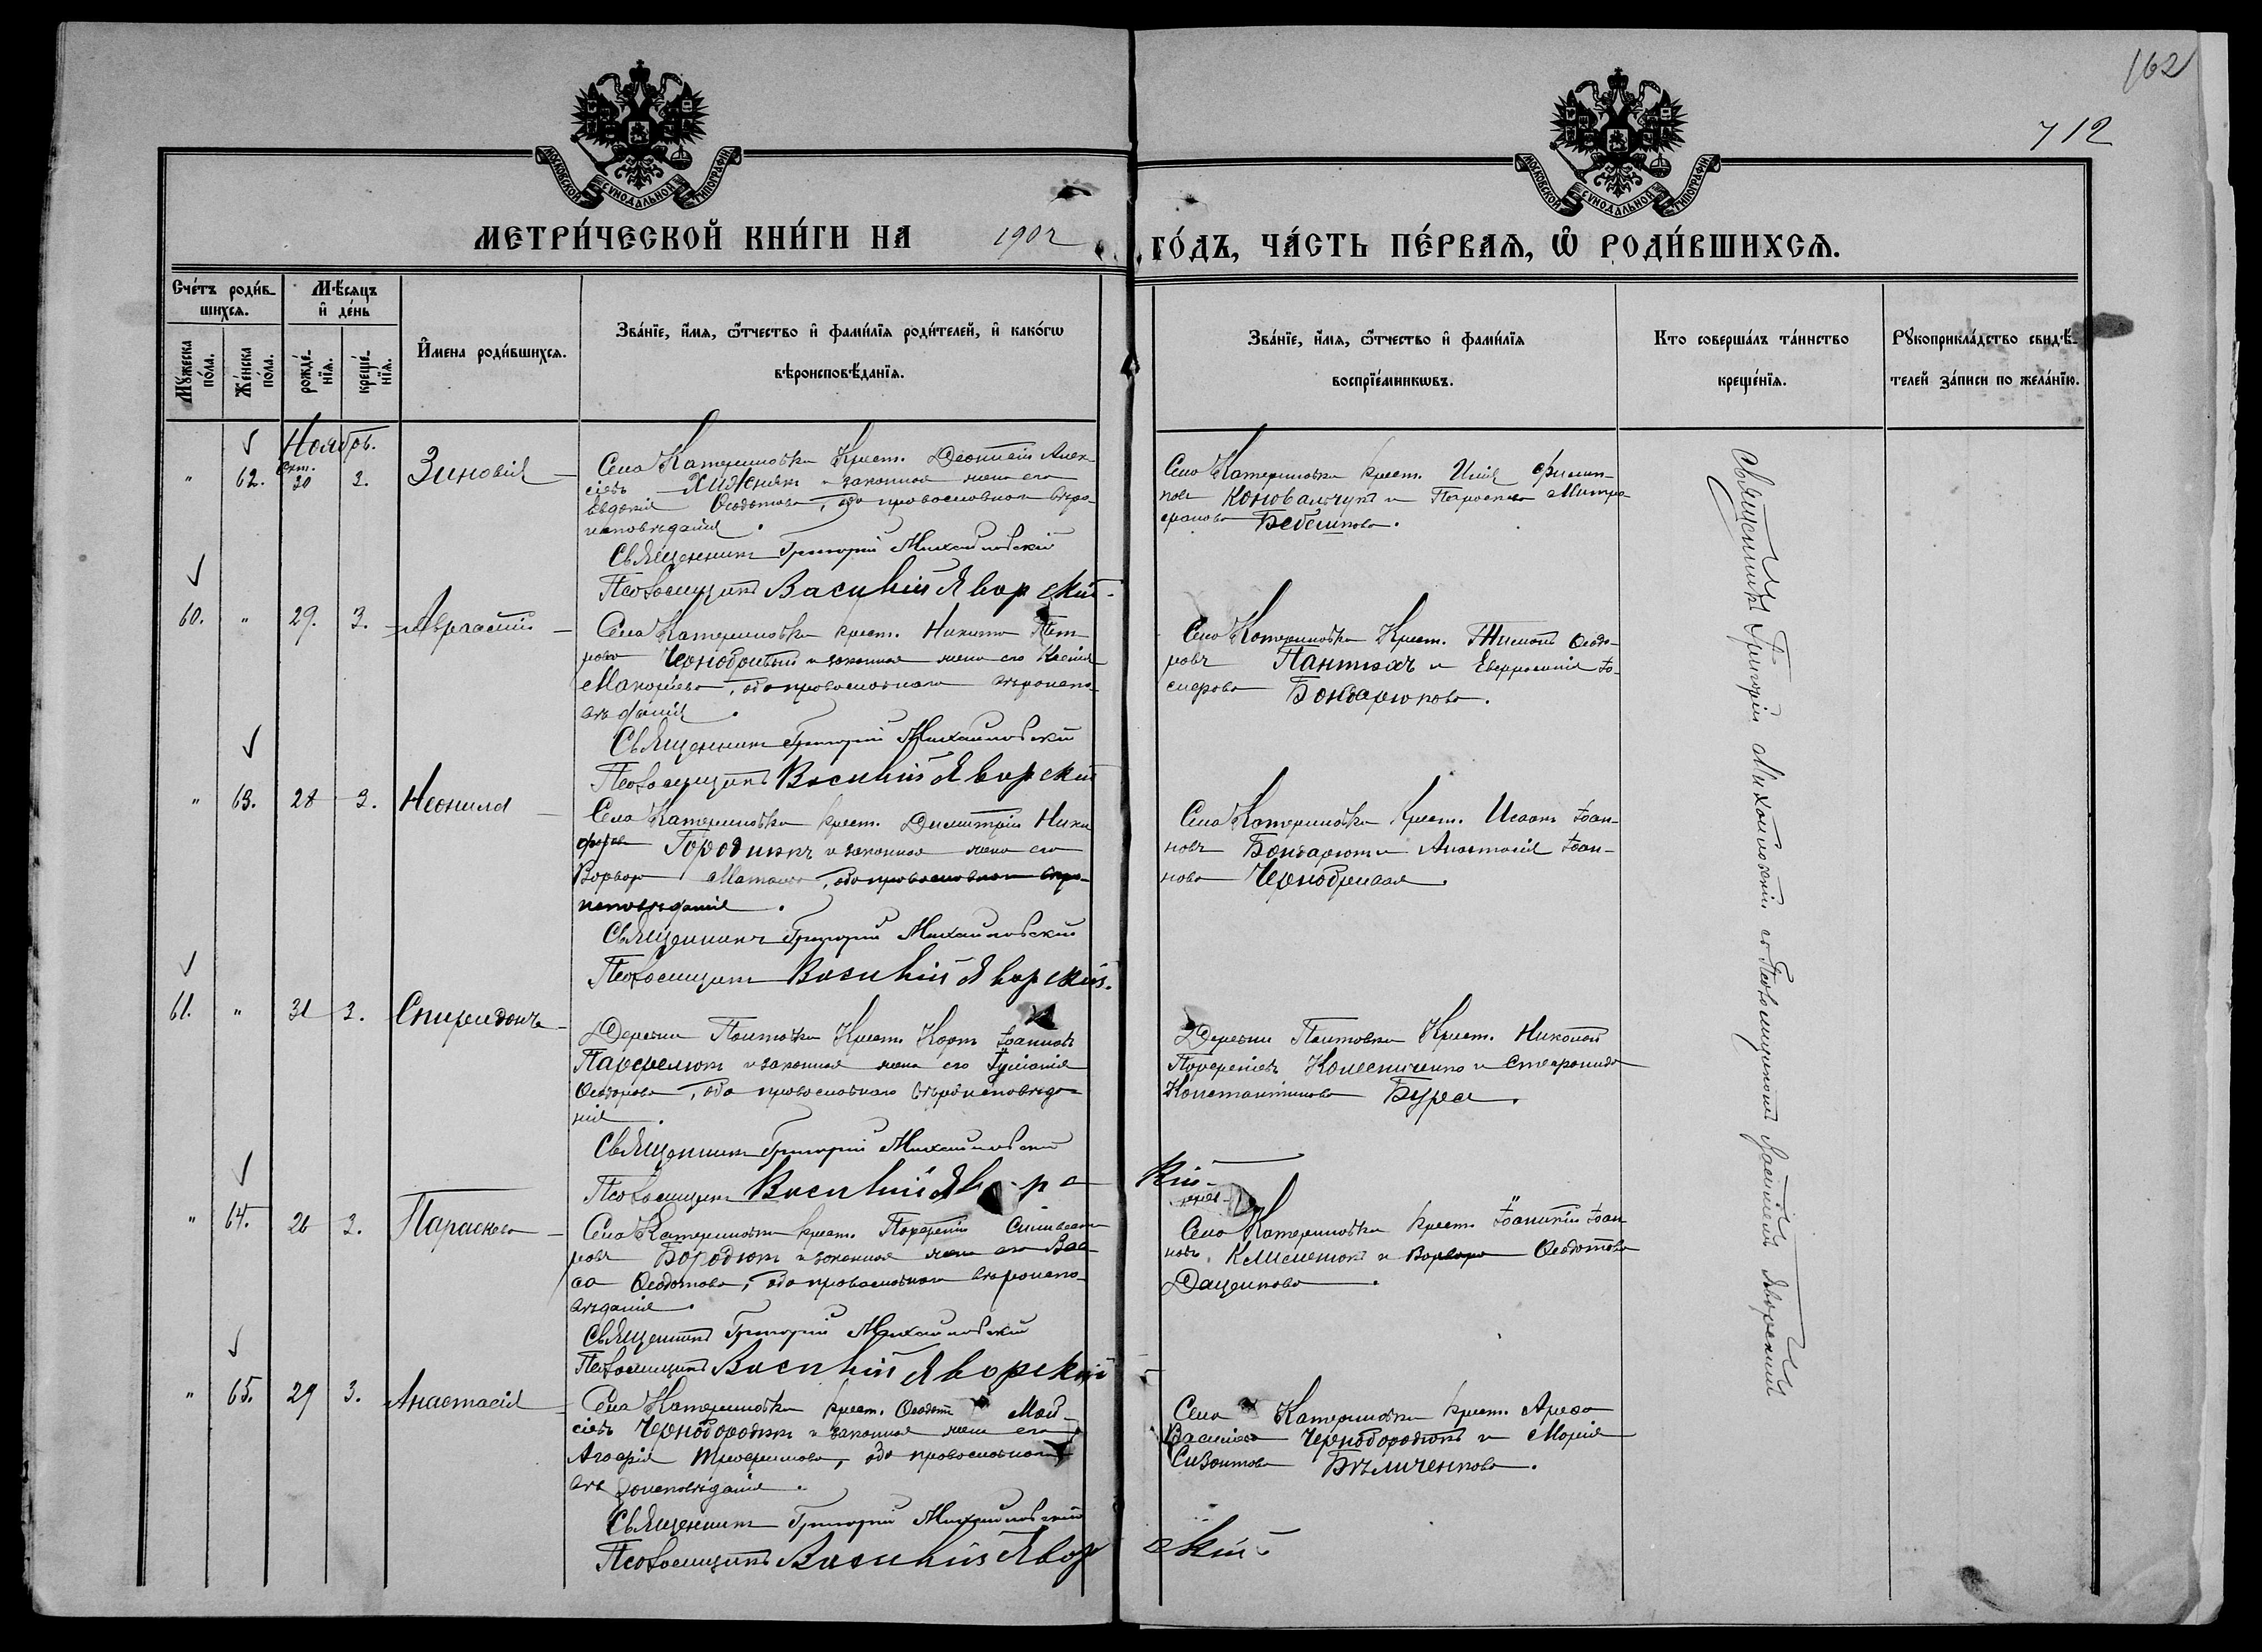 162
712
МОСКОВСКОЙ СѴНОДАЛЬНОЙ ТИПОГРАФІИ
МОСКОВСКОЙ СѴНОДАЛЬНОЙ ТИПОГРАФІИ
МЕТРИ́ЧЕСКОЙ КНИ́ГИ НА 1902 ГО́ДЪ, ЧА́СТЬ ПЕ́РВАѦ, Ѡ҆ РОДИ́ВШИХСѦ.
Сче́тъ роди́в-
шихсѧ.
Мꙋ́жеска по́ла.
Же́нска по́ла.
Мѣ́сѧцъ
и҆ де́нь
рожде́-
нїѧ.
креще́-
нїѧ.
И҆мена роди́вшихсѧ.
Зва́нїе, и҆́мѧ, ѻ҆́тчество и҆ фами́лїѧ роди́телей, и҆ како́гѡ
вѣроисповѣ́данїѧ.
Зва́нїе, и҆́мѧ, ѻ҆́тчество и҆ фами́лїѧ
воспрїе́мникѡвъ.
Кто соверша́лъ та́инство
креще́нїѧ.
Рꙋкоприкла́дство свидѣ́-
телей за́писи по жела́нїю.
Ноябрь.
" 62. Окт. 30 3. Зиновія
Села Катериновки Крест. Леонтій Алек-
сіевъ Хижнякъ и законная жена его
Евдокія Ѳеодотова, оба православнаго вѣро-
исповѣданія.
Священникъ Григорій Михайловскій
Псаломщикъ Василій Яворскій.
Села Катериновки крест. Илія Филип-
повъ Коновальчукъ и Параскева Митро-
фанова Бебешкова.
60. " 29. 3. Авксентій
Села Катериновки крест. Никита Пет-
ровъ Чернобривый и законная жена его Ксенія
Макаріева, оба православнаго вѣроиспо-
вѣданія.
Священникъ Григорій Михайловскій
Псаломщикъ Василій Яворскій
Села Катериновки Крест. Ѳеодо-
ровъ Пантюхъ и Евфросинія Іо-
сифова Бондарюкова.
" 63. 28 3. Неонила
Села Катериновки крест. Димитрій Ники-
форовъ Городнюкъ и законная жена его
Варвара оба православнаго вѣро-
исповѣданія.
Священникъ Григорій Михайловскій
Псаломщикъ Василій Яворскій.
Села Катериновки Крест. Исаакъ Іоан-
новъ Бондарюкъ и Анастасія Іоан-
нова Чернобривая.
61. " 31 3. Спиридонъ
Деревни Крест. Карпъ Іоанновъ
Парфелюкъ и законная жена его Іуліанія
Ѳеодорова, оба православнаго вѣроисповѣда-
нія.
Священникъ Григорій Михайловскій
Псаломщикъ Василій Яворскій
Деревни Крест. Николай
Порфиріевъ Колесниченко и Стефанида
Константинова Бура.
" 64. 26 3. Параскева
Села Катериновки крест. Порфирій Сильвест-
ровъ Бородюкъ и законная жена его Вас-
са Ѳеодотова, оба православнаго вѣроиспо-
вѣданія.
Священникъ Григорій Михайловскій
Псаломщикъ Василій Яворскій
Села Катериновки крест. Іоанникій Іоан-
новъ Клименюкъ и Варвара Ѳеодотова
Даценкова.
" 65. 29 3. Анастасія
Села Катериновки крест. Ѳеодотъ Мой-
сіевъ Чернобородюкъ и законная жена его
Агафія Трифонова, оба православнаго
вѣроисповѣданія.
Священникъ Григорій Михайловскій
Псаломщикъ Василій Яворскій
Села Катериновки крест.
Василіева Чернобородюкъ и Марія
Сизонтова Бѣличенкова.
Священникъ Григорій Михайловскій съ Псаломщикомъ Василіемъ Яворскимъ